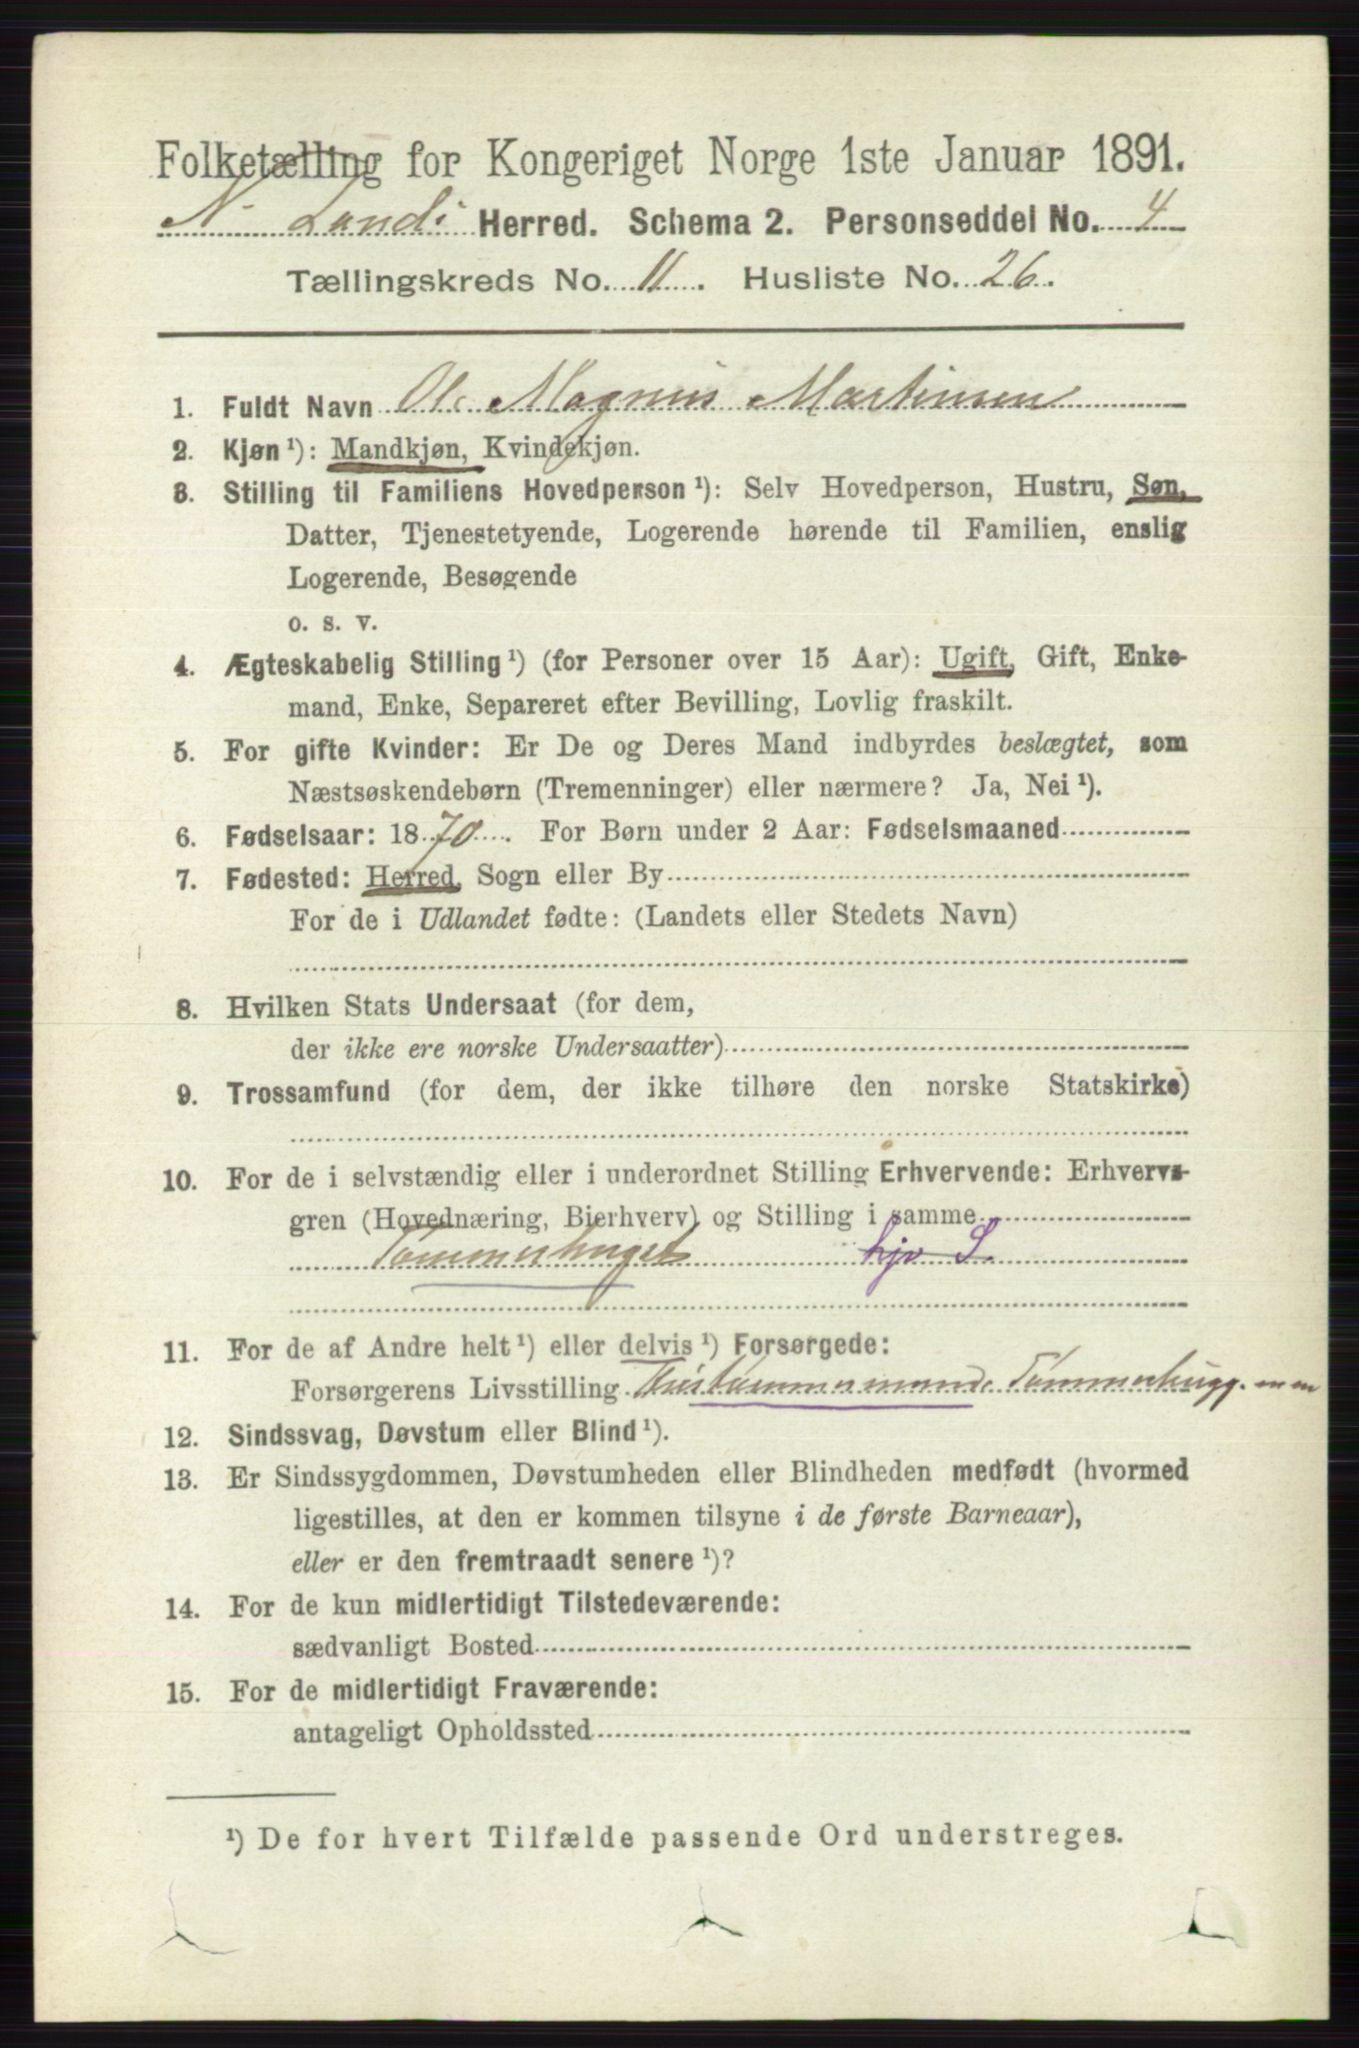 Folketælling for Kongeriget Norge 1ste Januar 1891.
N. Landi Herred. Schema 2. Personseddel No. 4
Tællingskreds No. 11. Husliste No. 26.
1. Fuldt Navn Ole Magnus Martinsen
2. Kjøn ¹): Mandkjøn, Kvindekjøn.
3. Stilling til Familiens Hovedperson ¹): Selv Hovedperson, Hustru, Søn,
Datter, Tjenestetyende, Logerende hørende til Familien, enslig
Logerende, Besøgende
o. s. v.
4. Ægteskabelig Stilling ¹) (for Personer over 15 Aar): Ugift, Gift, Enke-
mand, Enke, Separeret efter Bevilling, Lovlig fraskilt.
5. For gifte Kvinder: Er De og Deres Mand indbyrdes beslægtet, som
Næstsøskendebørn (Tremenninger) eller nærmere? Ja, Nei ¹).
6. Fødselsaar: 1870. For Børn under 2 Aar: Fødselsmaaned
7. Fødested: Herred, Sogn eller By
For de i Udlandet fødte: (Landets eller Stedets Navn)
8. Hvilken Stats Undersaat (for dem,
der ikke ere norske Undersaatter)
9. Trossamfund (for dem, der ikke tilhøre den norske Statskirke)
10. For de i selvstændig eller i underordnet Stilling Erhvervende: Erhvervs-
gren (Hovednæring, Bierhverv) og Stilling i samme
Tømmerhugst hjv S.
11. For de af Andre helt ¹) eller delvis ¹) Forsørgede:
Forsørgerens Livsstilling Tømmerhugg.
12. Sindssvag, Døvstum eller Blind ¹).
13. Er Sindssygdommen, Døvstumheden eller Blindheden medfødt (hvormed
ligestilles, at den er kommen tilsyne i de første Barneaar),
eller er den fremtraadt senere ¹)?
14. For de kun midlertidigt Tilstedeværende:
sædvanligt Bosted
15. For de midlertidigt Fraværende:
antageligt Opholdssted
¹) De for hvert Tilfælde passende Ord understreges.